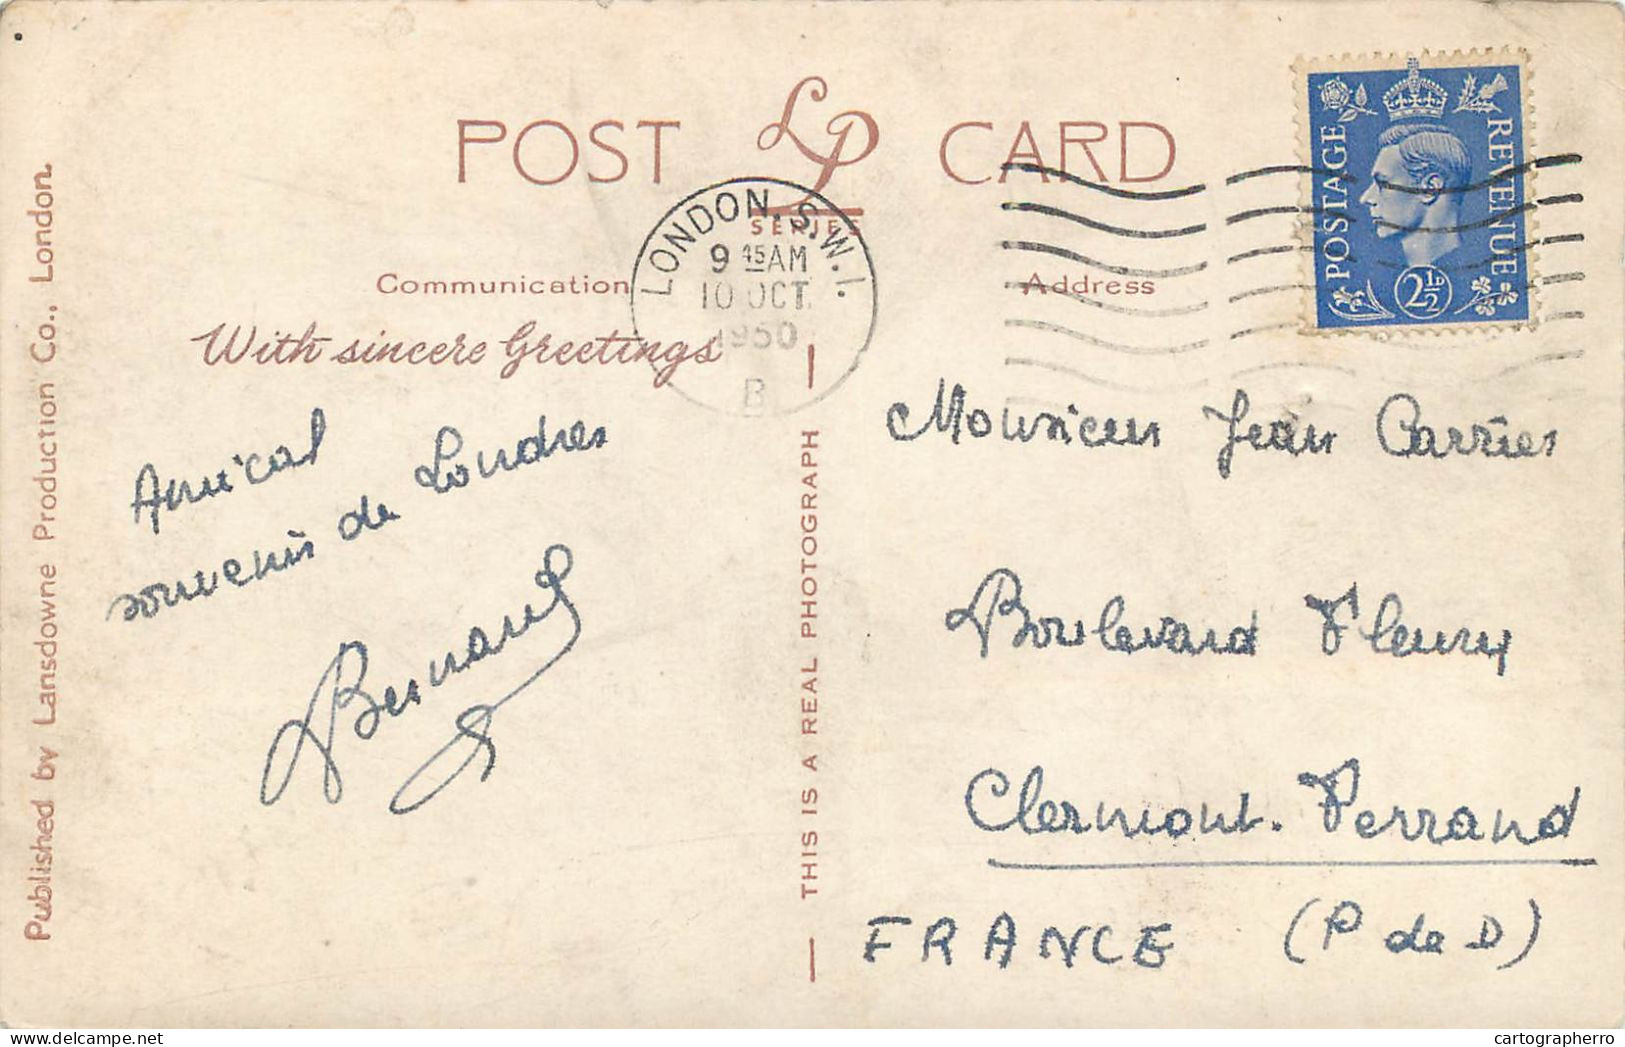 POST LP CARD
SERIES
Communication
Address
With sincere Greetings
LONDON. S.W.1.
9 45 AM
10 OCT.
1950
B
POSTAGE
REVENUE
2½D
Amical
souvenir de Londres
Bernard
Monsieur Jean Carries
Boulevard Fleury
Clermont. Ferrand
FRANCE (P de D)
THIS IS A REAL PHOTOGRAPH
Published by Lansdowne Production Co., London.
cartographerro